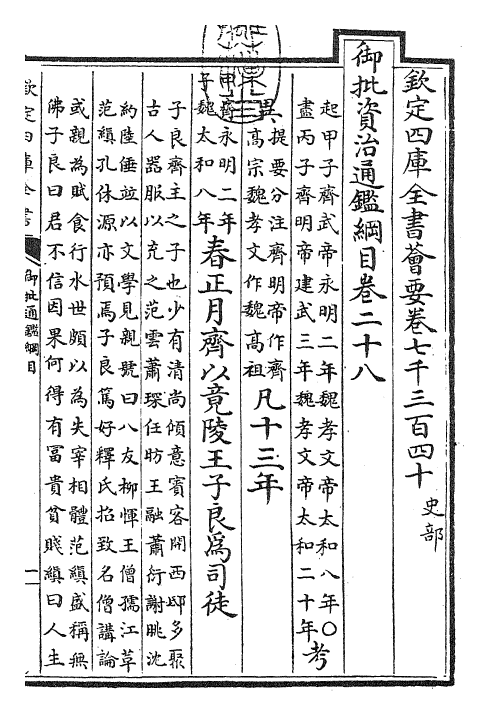 欽定四庫全書薈要卷七千三百四十　史部
御批資治通鑑綱目卷二十八
起甲子齊武帝永明二年魏孝文帝太和八年〇
盡丙子齊明帝建武三年魏孝文帝太和二十年考
異提要分注齊明帝作齊
高宗魏孝文作魏高祖
凡十三年
甲齊永明二年
子魏太和八年
春正月齊以竟陵王子良為司徒
子良齊主之子也少有清尚傾意賓客開西邸多聚
古人器服以充之范雲蕭琛任昉王融蕭衍謝朓沈
約陸倕並以文學見親號曰八友柳惲王僧孺江革
范縝孔休源亦預焉子良篤好釋氏招致名僧講論
或親為賦食行水世頗以為失宰相體范縝盛稱無
佛子良曰君不信因果何得有富貴貧賤縝曰人生
欽定四庫全書
御批通鑑綱目
一